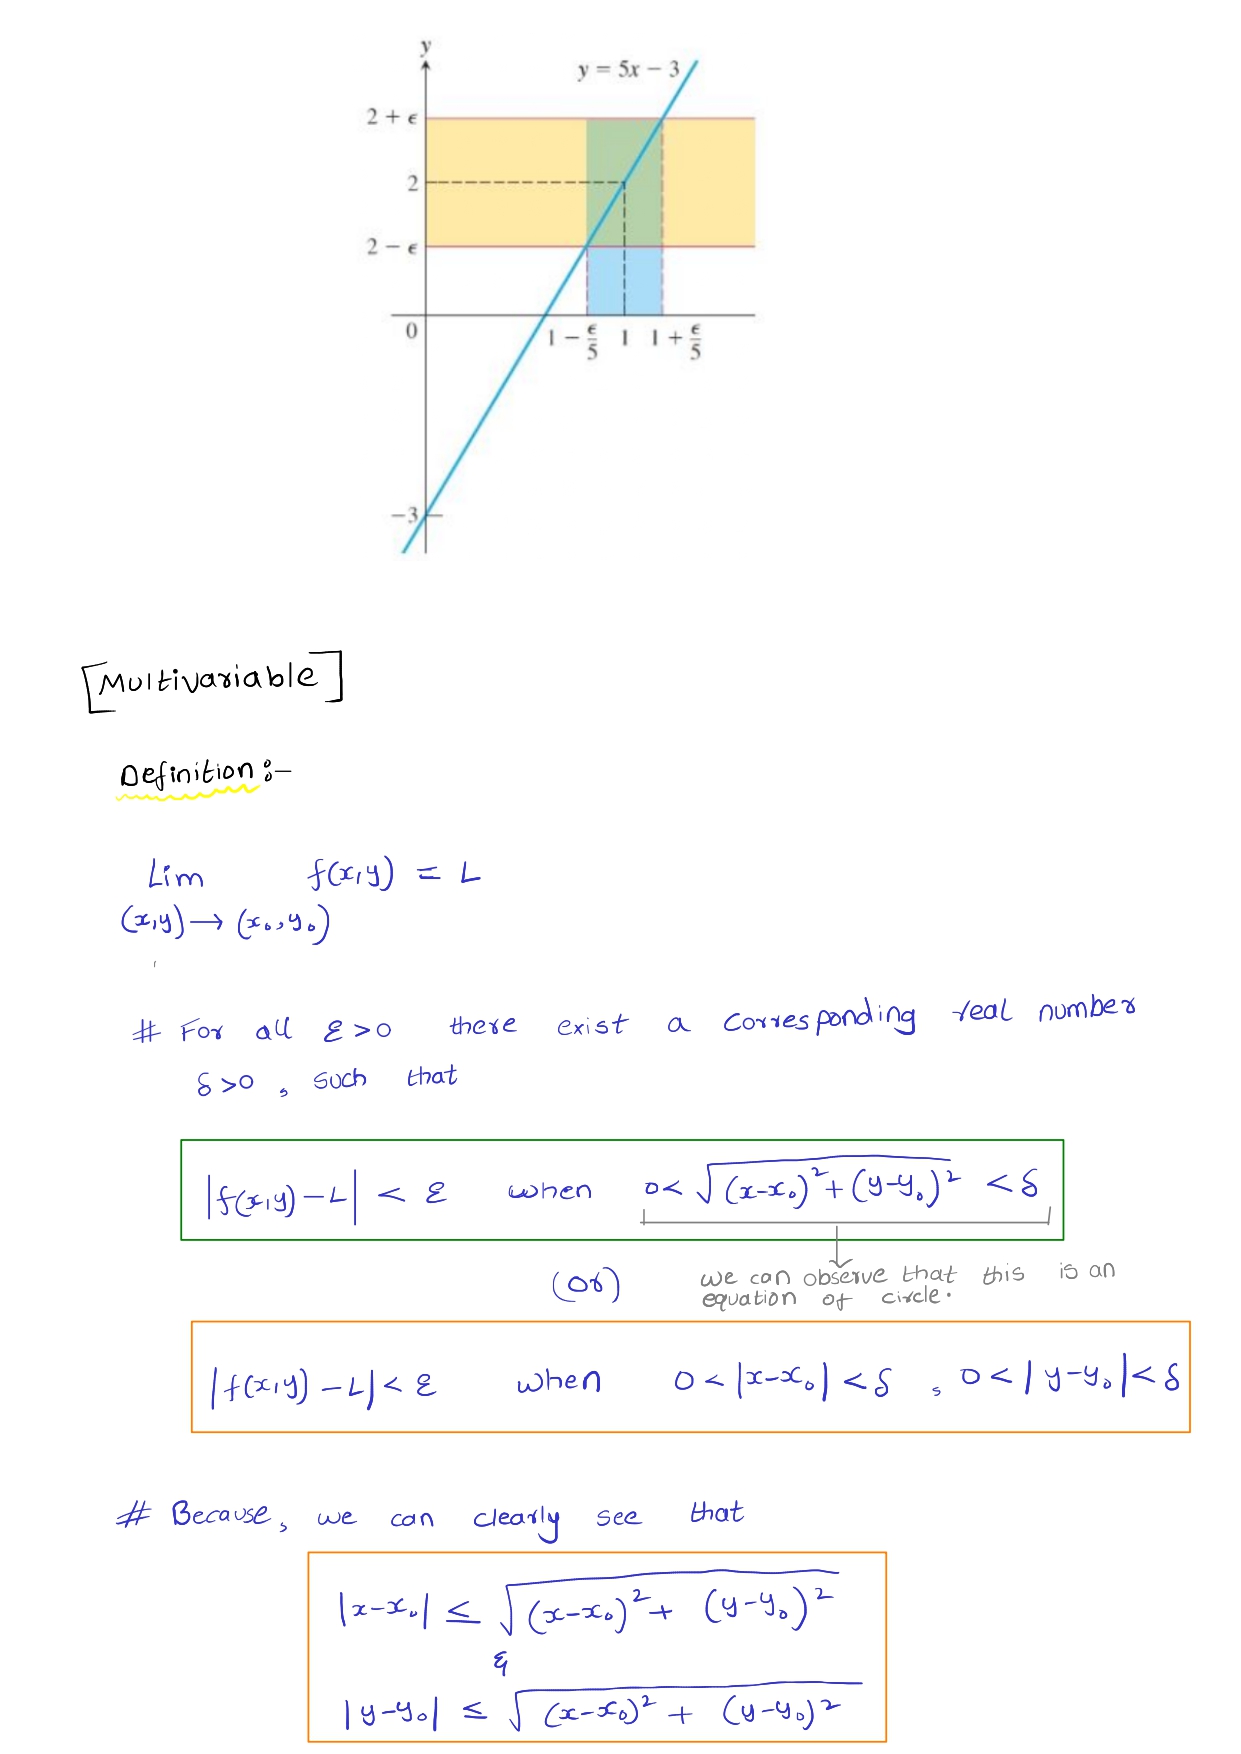 y
y = 5x − 3
2 + ϵ
2
2 − ϵ
0
1 − ϵ/5 1 1 + ϵ/5
−3
[Multivariable]
Definition :-
Lim f(x,y) = L
(x,y) → (x₀,y₀)
# For all ε>0 there exist a corresponding real number
δ>0 , such that
|f(x,y) − L| < ε when 0 < √(x−x₀)² + (y−y₀)² < δ
(or) we can observe that this is an
equation of circle.
|f(x,y) − L| < ε when 0 < |x−x₀| < δ , 0 < |y−y₀| < δ
# Because, we can clearly see that
|x−x₀| ≤ √(x−x₀)² + (y−y₀)²
&
|y−y₀| ≤ √(x−x₀)² + (y−y₀)²